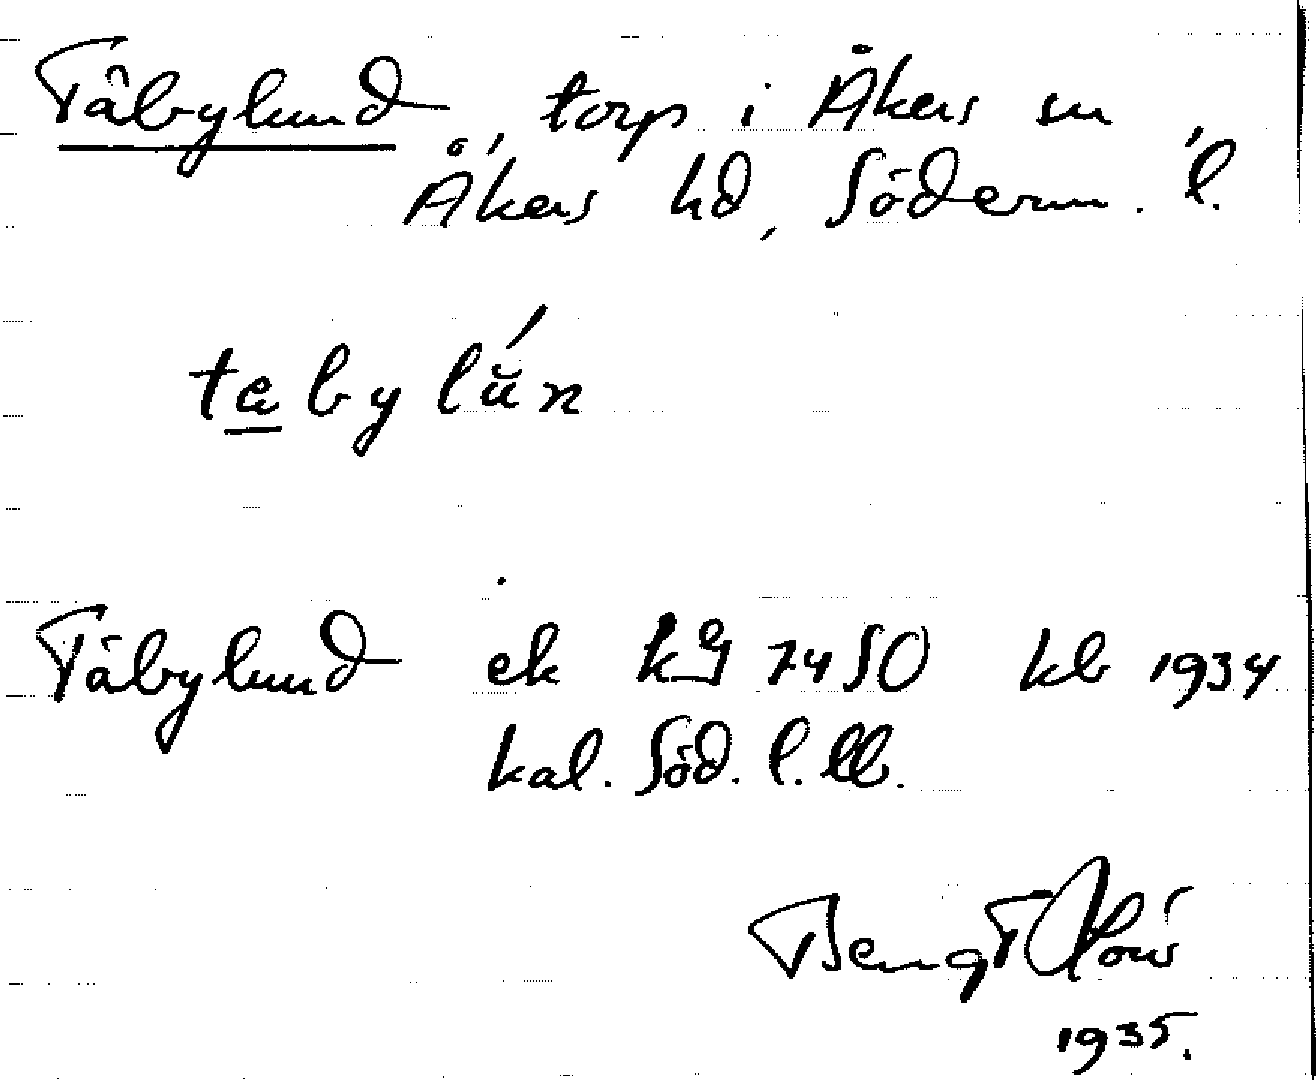 Täbylund, torp i Åkers sn,
Åkers hd, Söderm. l.
täbylŭ́n
Täbylund ek kg 7450 kb 1934
kal. Söd. l. ll.
Bengt
1935.